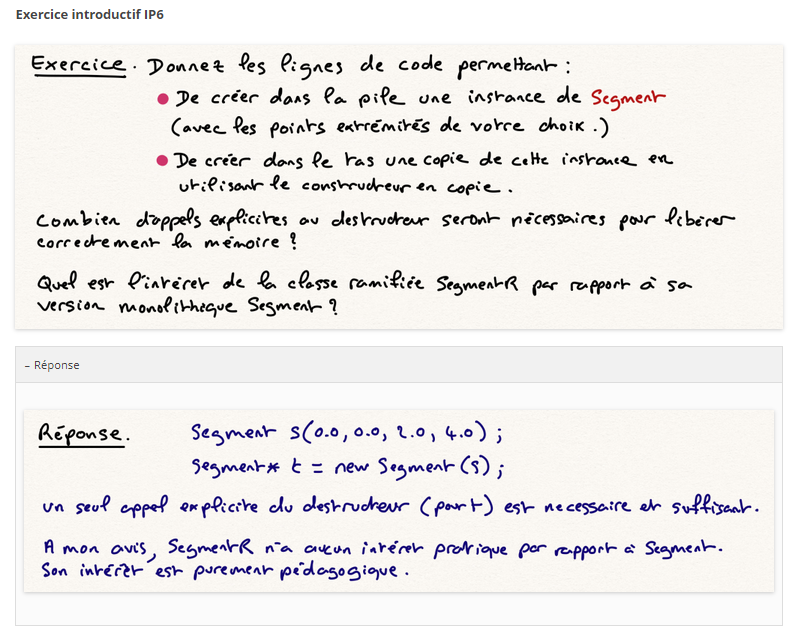 Exercice introductif IP6
Exercice. Donnez les lignes de code permettant :
● De créer dans la pile une instance de Segment
(avec les points extrémités de votre choix.)
● De créer dans le tas une copie de cette instance en
utilisant le constructeur en copie.
Combien d'appels explicites au destructeur seront nécessaires pour libérer
correctement la mémoire ?
Quel est l'intéret de la classe ramifiée SegmentR par rapport à sa
version monolithique Segment ?
– Réponse
Réponse. Segment s(0.0, 0.0, 2.0, 4.0) ;
Segment* t = new Segment(s) ;
un seul appel explicite du destructeur (pour t) est necessaire et suffisant.
A mon avis, SegmentR n'a aucun intéret pratique par rapport à Segment.
Son intérêt est purement pédagogique.